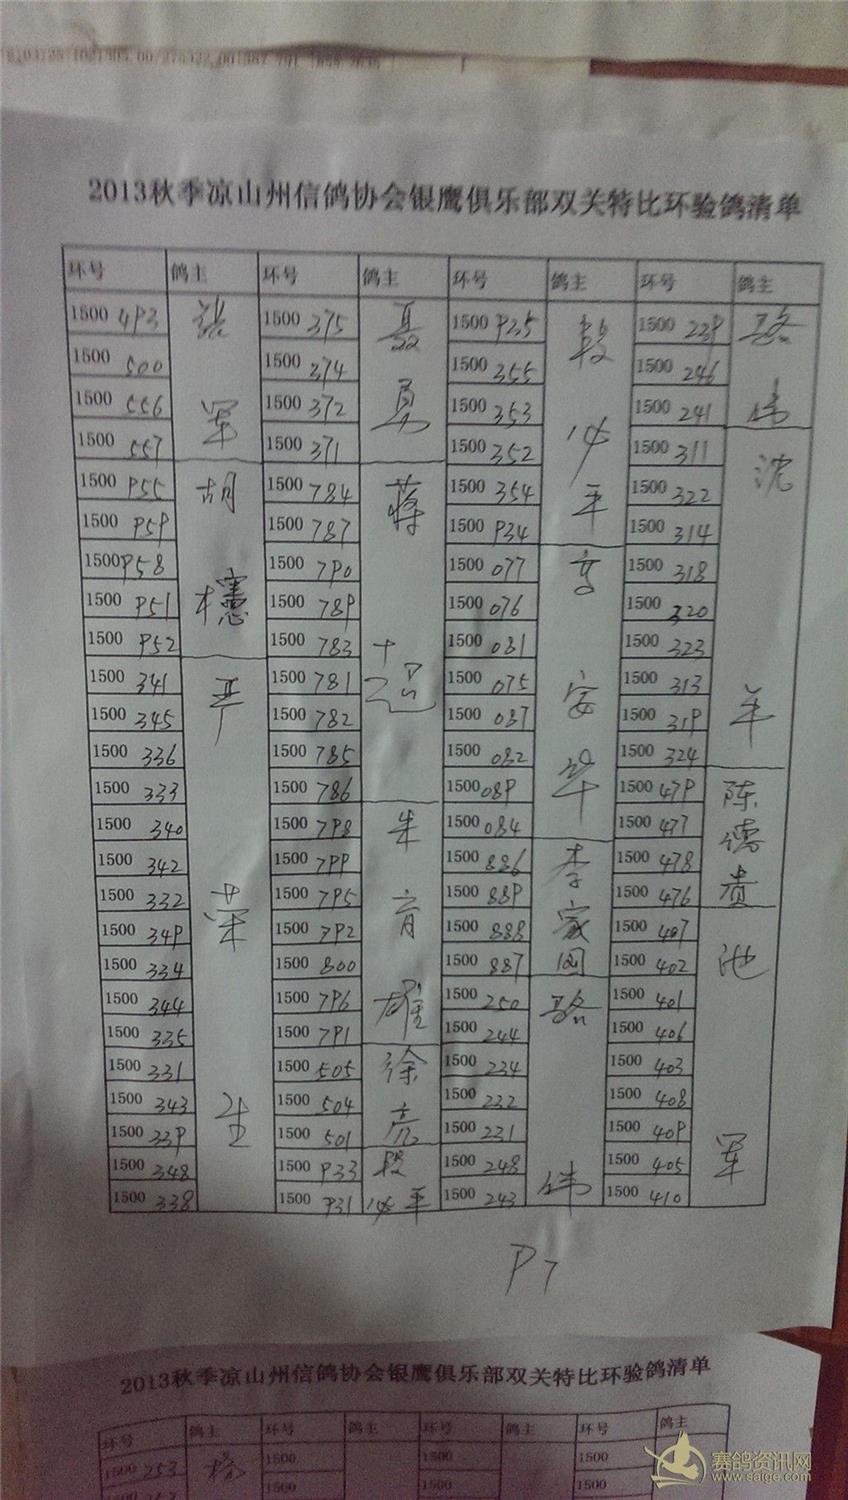 2013秋季凉山州信鸽协会银鹰俱乐部双关特比环验鸽清单
环号 鸽主 环号 鸽主 环号 鸽主 环号 鸽主
1500 4P3 张 1500 375 聂 1500 P35 段 1500 23P 骆
1500 500 1500 374 1500 355 1500 246
1500 556 军 1500 372 勇 1500 353 1500 241 伟
1500 557 1500 371 1500 352 必 1500 311 沈
1500 P55 胡 1500 784 蒋 1500 354 平 1500 322
1500 P5P 1500 787 1500 P34 1500 314
1500 P58 1500 7P0 1500 077 1500 318
1500 P51 1500 78P 1500 076 1500 320
1500 P52 1500 783 1500 081 1500 323
1500 341 严 1500 781 超 1500 075 安 1500 313
1500 345 1500 782 1500 087 1500 31P
1500 336 1500 785 1500 082 1500 324
1500 333 1500 786 1500 08P 华 1500 47P 陈
1500 340 1500 7P8 朱 1500 084 1500 477 德
1500 342 1500 7PP 1500 886 李 1500 478
1500 332 荣 1500 7P5 1500 88P 家 1500 476 贵
1500 34P 1500 7P2 育 1500 888 1500 407
1500 334 1500 800 1500 887 1500 402 池
1500 344 1500 7P6 雄 1500 250 骆 1500 401
1500 335 1500 7P1 1500 244 1500 406
1500 331 1500 505 徐 1500 234 1500 403
1500 343 生 1500 504 亮 1500 232 1500 408
1500 33P 1500 501 1500 231 1500 40P 军
1500 348 1500 P33 段 1500 248 伟 1500 405
1500 338 1500 P31 必平 1500 243 1500 410
P7
2013秋季凉山州信鸽协会银鹰俱乐部双关特比环验鸽清单
环号 鸽主 环号 鸽主 环号 鸽主 环号 鸽主
1500 253 杨 1500 1500 1500
1500 1500 1500
赛鸽资讯网
www.saige.com